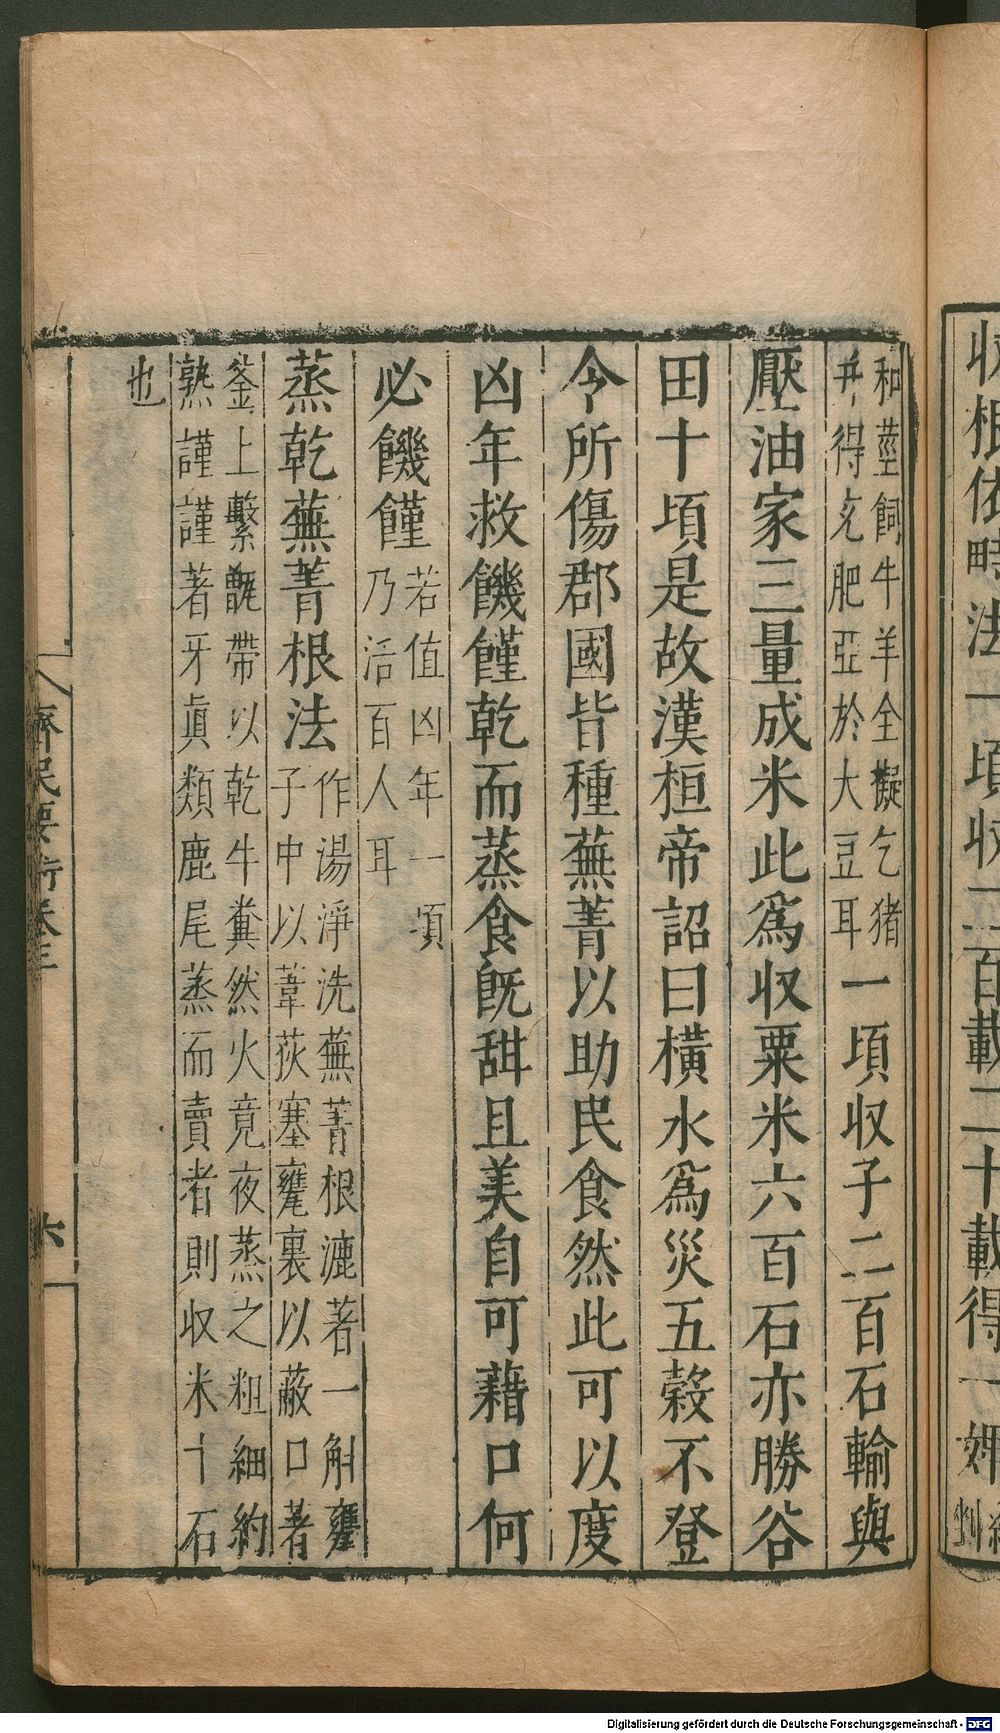 収根依畤法一頃収二百載二十載得一婢
和莖飼牛羊全擬乞猪
并得充肥亞於大豆耳
一頃収子二百石輸與
壓油家三量成米此爲収粟米六百石亦勝谷
田十頃是故漢桓帝詔曰橫水爲災五穀不登
令所傷郡國皆種蕪菁以助民食然此可以度
凶年救饑饉乾而蒸食旣甜且美自可藉口何
必饑饉
若值凶年一頃
乃活百人耳
蒸乾蕪菁根法
作湯淨洗蕪菁根漉著一斛甕
子中以葦荻塞甕裏以蔽口著
釜上繫甑帶以乾牛糞然火竟夜蒸之粗細約
熟謹謹著牙眞類鹿尾蒸而賣者則収米十石
也
齊民要術卷三
六
Digitalisierung gefördert durch die Deutsche Forschungsgemeinschaft - DFG